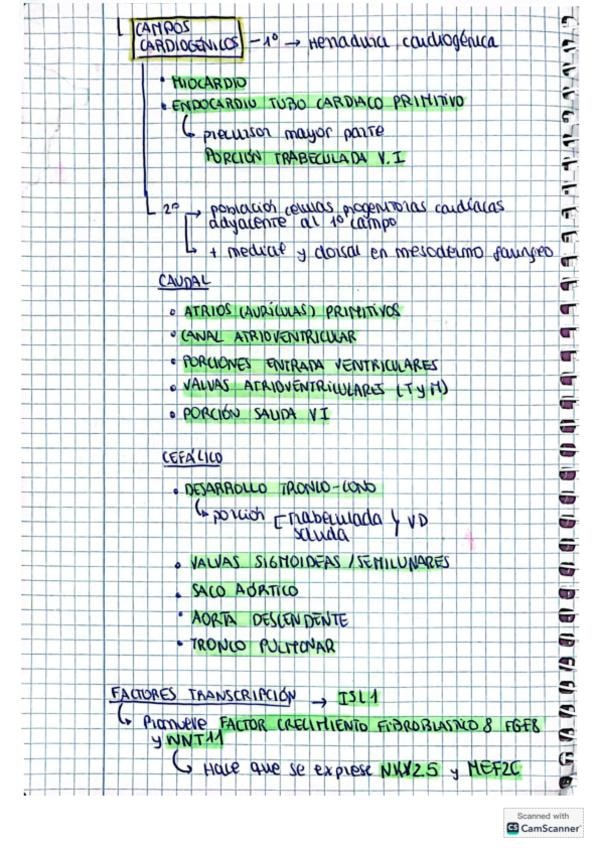 CAMPOS
CARDIOGÉNICOS - 1º → Herradura cardiogénica
• MIOCARDIO
• ENDOCARDIO TUBO CARDIACO PRIMITIVO
↳ precursor mayor parte
PORCIÓN TRABECULADA V.I
2º → población células progenitoras cardíacas
adyacente al 1º campo
↳ + medial y dorsal en mesodermo faríngeo
CAUDAL
• ATRIOS (AURÍCULAS) PRIMITIVOS
• CANAL ATRIOVENTRICULAR
• PORCIONES ENTRADA VENTRICULARES
• VALVAS ATRIOVENTRICULARES (T y M)
• PORCIÓN SALIDA VI
CEFÁLICO
• DESARROLLO TRONCO-CONO
↳ porción [ trabeculada } VD
salida
• VALVAS SIGMOIDEAS / SEMILUNARES
• SACO AÓRTICO
• AORTA DESCENDENTE
• TRONCO PULMONAR
FACTORES TRANSCRIPCIÓN → ISL1
↳ Promueve FACTOR CRECIMIENTO FIBROBLASTICO 8 FGF8
y WNT11
↳ Hace que se exprese NKX2.5 y MEF2C
Scanned with
CS CamScanner